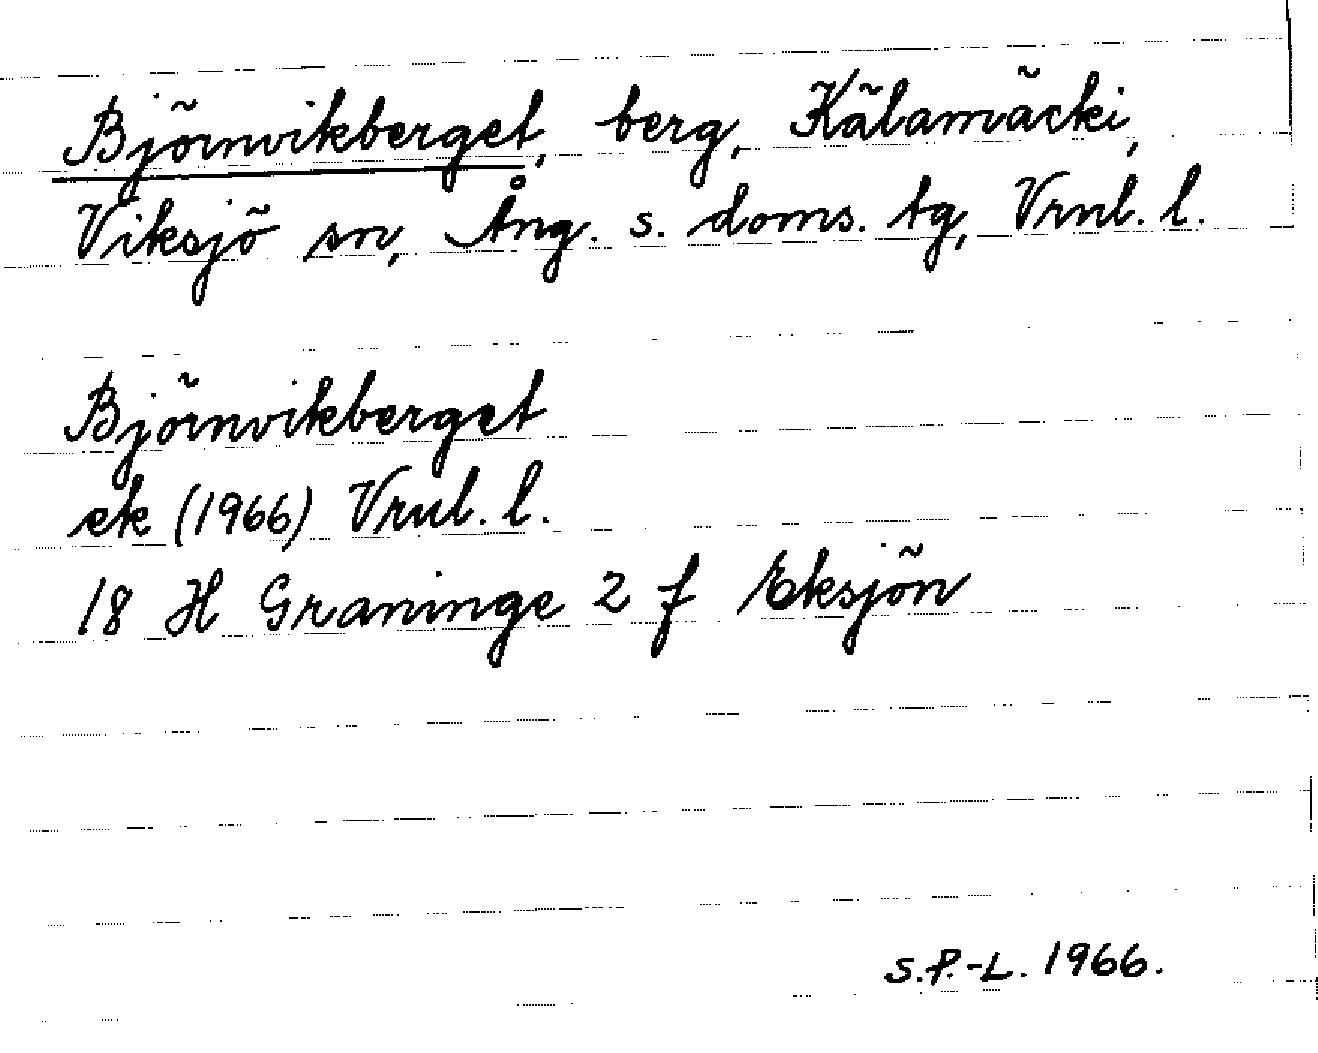 Björnvikberget, berg, Kälamäcki,
Viksjö sn, Ång. s. doms. tg, Vrnl. l.
Björnvikberget
ek (1966) Vrnl. l.
18 H Graninge 2 f Eksjön
S.P.-L. 1966.